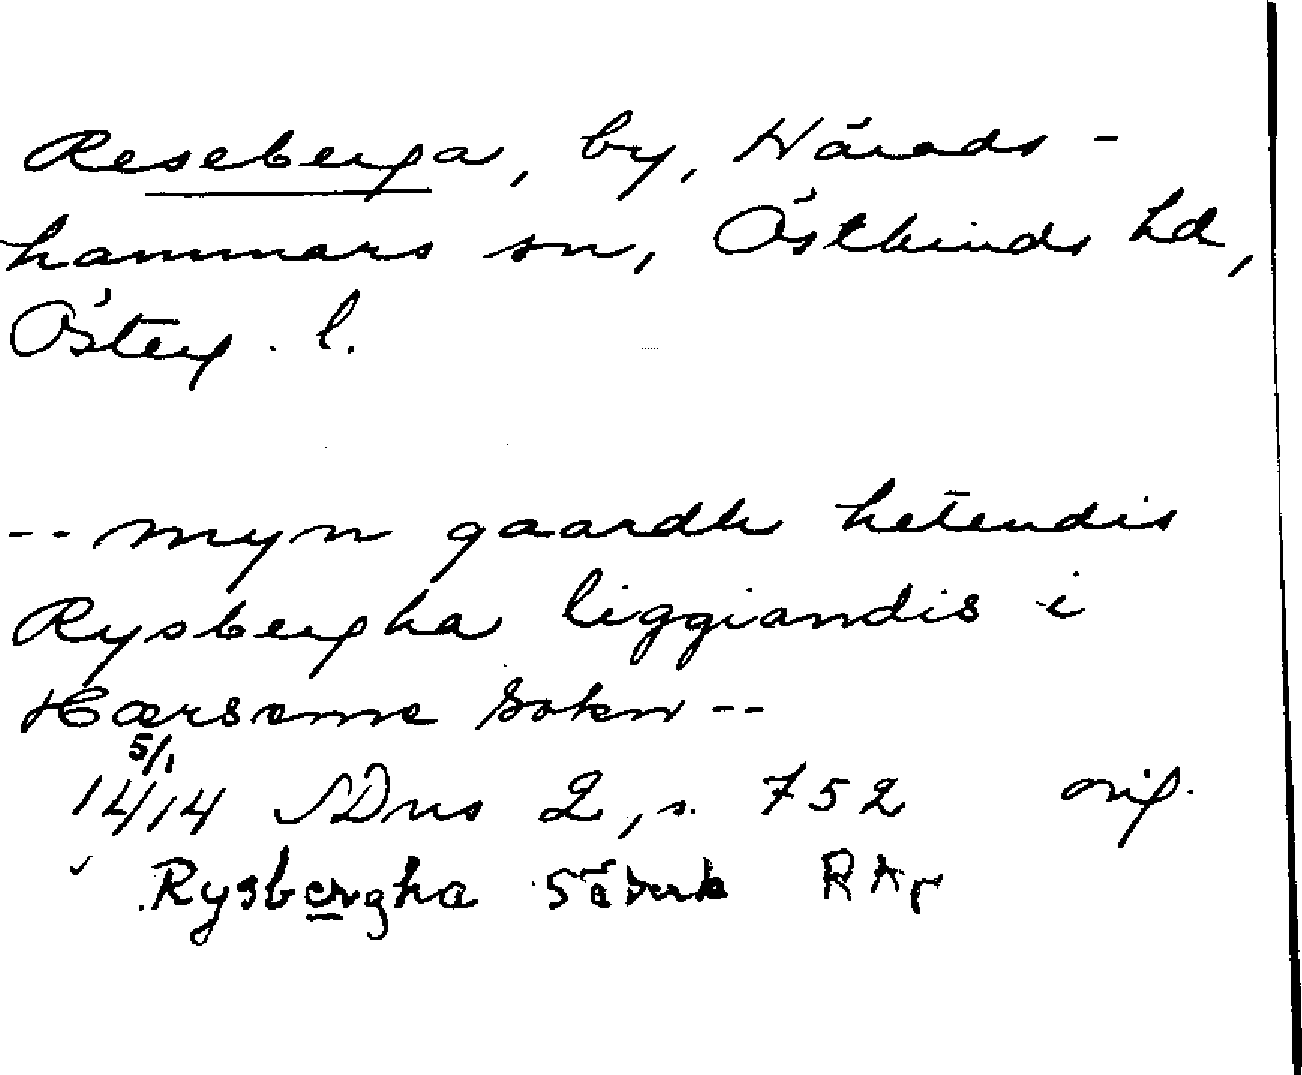 Reseberga, by, Härads-
hammars sn, Östkinds hd,
Österg. l.
-- myn gaardh hetendis
Rysbergha liggiandis i
Hærseme sokn --
5/1
1414 SDns 2, s. 752 orig.
Rysbergha säkert